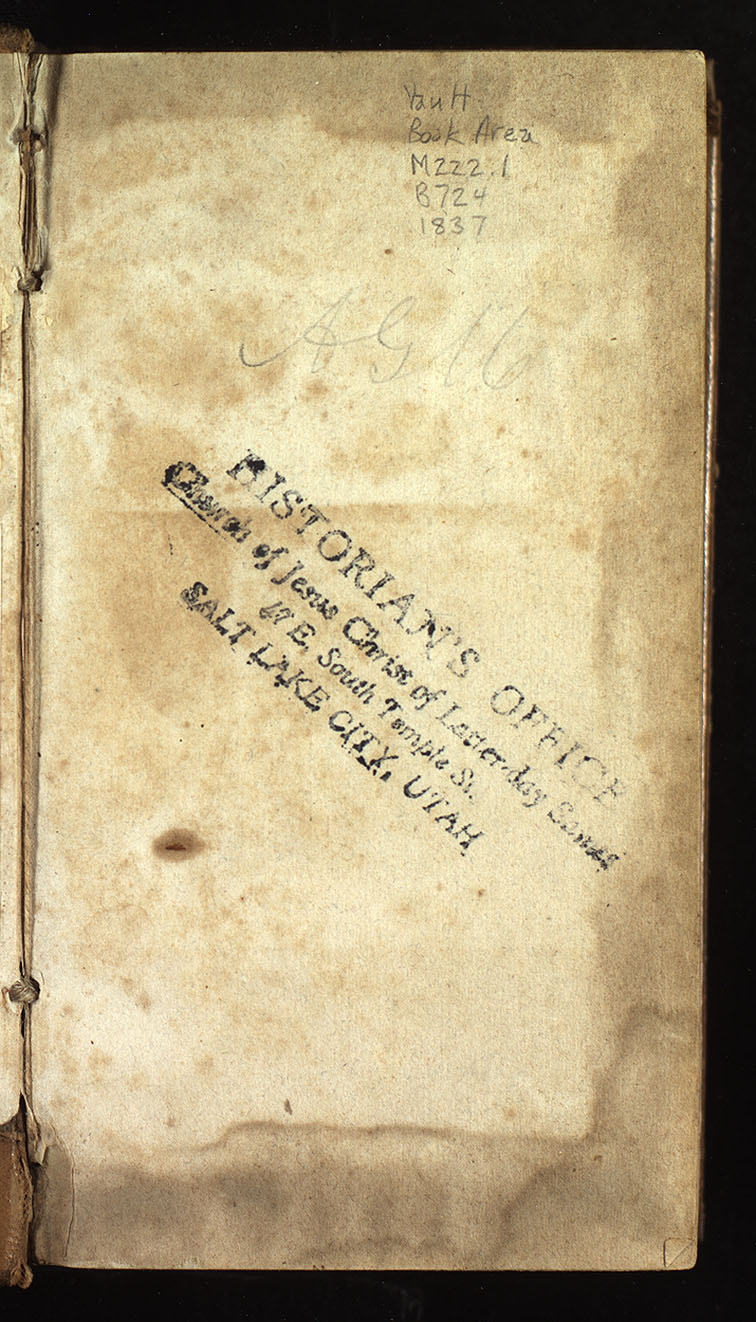 Vault
Book Area
M222.1
B724
1837
AG 16
HISTORIAN'S OFFICE
Church of Jesus Christ of Latter-day Saints
47 E. South Temple St.
SALT LAKE CITY, UTAH